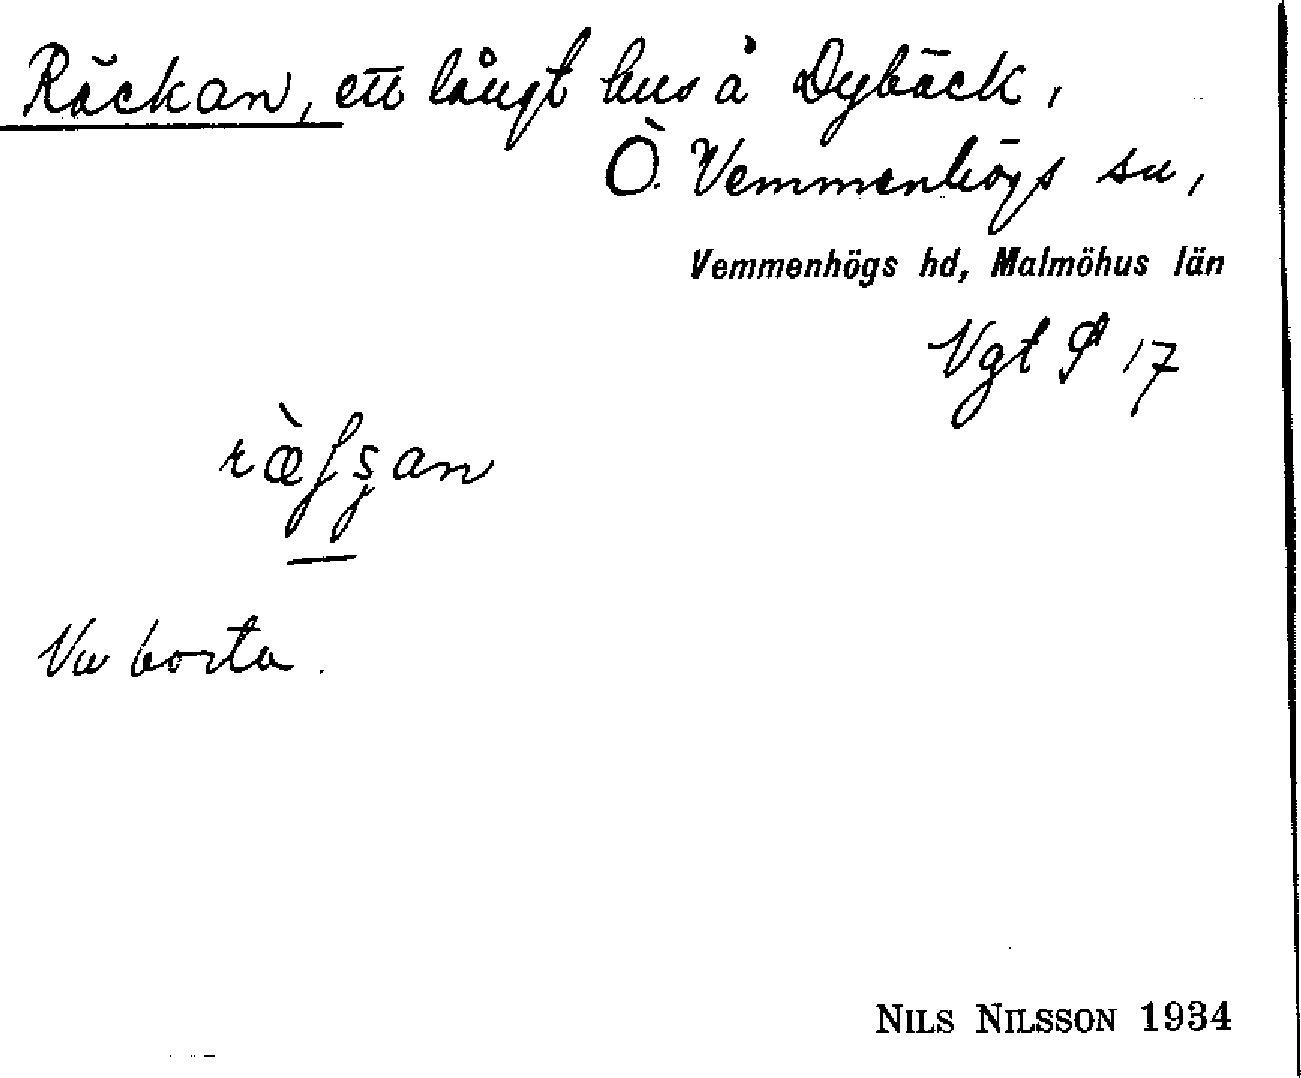 Räckan, ett långt hus å Dybäck,
Ö. Vemmenhögs sn,
Vemmenhögs hd, Malmöhus län
Vgt 17
Va borta.
NILS NILSSON 1934